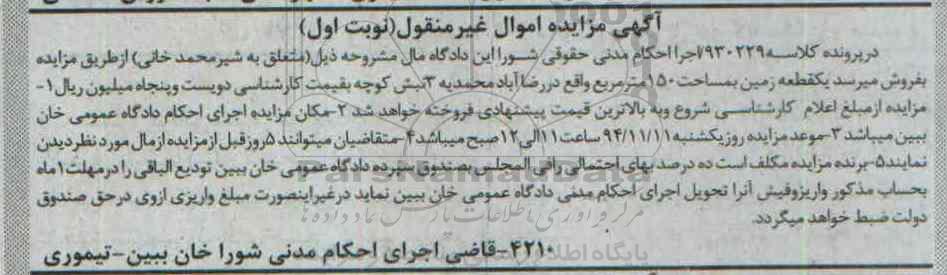 آگهی مزایده اموال غیرمنقول(نوبت اول)
درپرونده کلاسه۹۳۰۲۲۹/اجرا احکام مدنی حقوقی شورا این دادگاه مال مشروحه ذیل(متعلق به شیرمحمد خانی) ازطریق مزایده
بفروش میرسد یکقطعه زمین بمساحت۱۵۰مترمربع واقع دررضاآباد محمدیه ۳نبش کوچه بقیمت کارشناسی دویست وپنجاه میلیون ریال۱-
مزایده ازمبلغ اعلام کارشناسی شروع وبه بالاترین قیمت پیشنهادی فروخته خواهد شد ۲-مکان مزایده اجرای احکام دادگاه عمومی خان
ببین میباشد ۳-موعد مزایده روزیکشنبه۹۴/۱۱/۱۱ ساعت۱۱الی۱۲صبح میباشد۴-متقاضیان میتوانند۵روزقبل ازمزایده ازمال مورد نظردیدن
نمایند۵-برنده مزایده مکلف است ده درصد بهای احتمالی رافی المجلس بصندوق سپرده دادگاه عمومی خان ببین تودیع الباقی را درمهلت۱ماه
بحساب مذکور واریزوفیش آنرا تحویل اجرای احکام مدنی دادگاه عمومی خان ببین نماید درغیراینصورت مبلغ واریزی ازوی درحق صندوق
دولت ضبط خواهد میگردد.
۴۲۱۰-قاضی اجرای احکام مدنی شورا خان ببین-تیموری